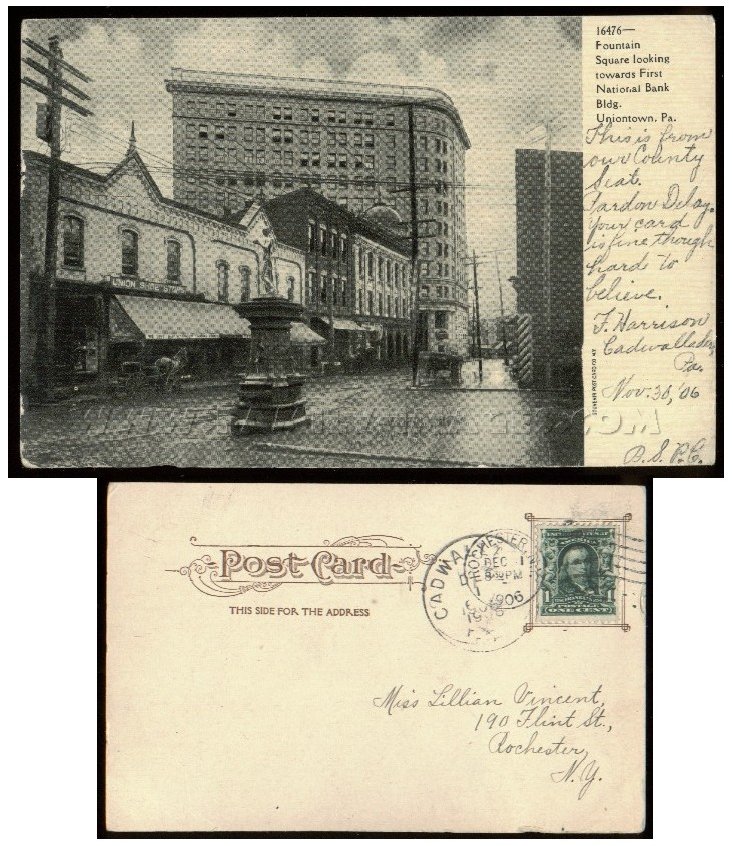 16476—
Fountain
Square looking
towards First
National Bank
Bldg.
Uniontown, Pa.
This is from
our County
Seat.
Pardon Delay.
Your card
is fine though
hard to
believe.
F. Harrison
Cadwallader,
Pa.
Nov. 30, '06
B. S. P. C.
SOUVENIR POST CARD CO. N.Y.
UNION
Post Card
THIS SIDE FOR THE ADDRESS
CADWAL
ROCHESTER
DEC 1
8 30 PM
1906
POSTAGE
1 ONE CENT 1
Miss Lillian Vincent,
190 Flint St.,
Rochester,
N.Y.